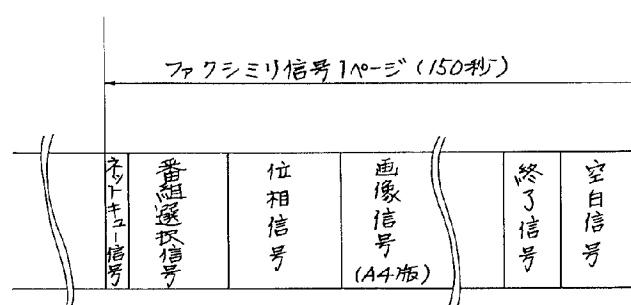 ファクシミリ信号1ページ(150秒)
ネットキュー信号
番組選択信号
位相信号
画像信号
(A4版)
終了信号
空白信号